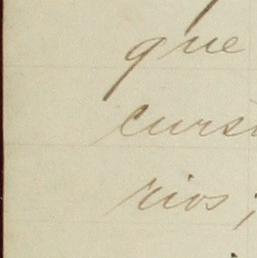 que
curs
rios;